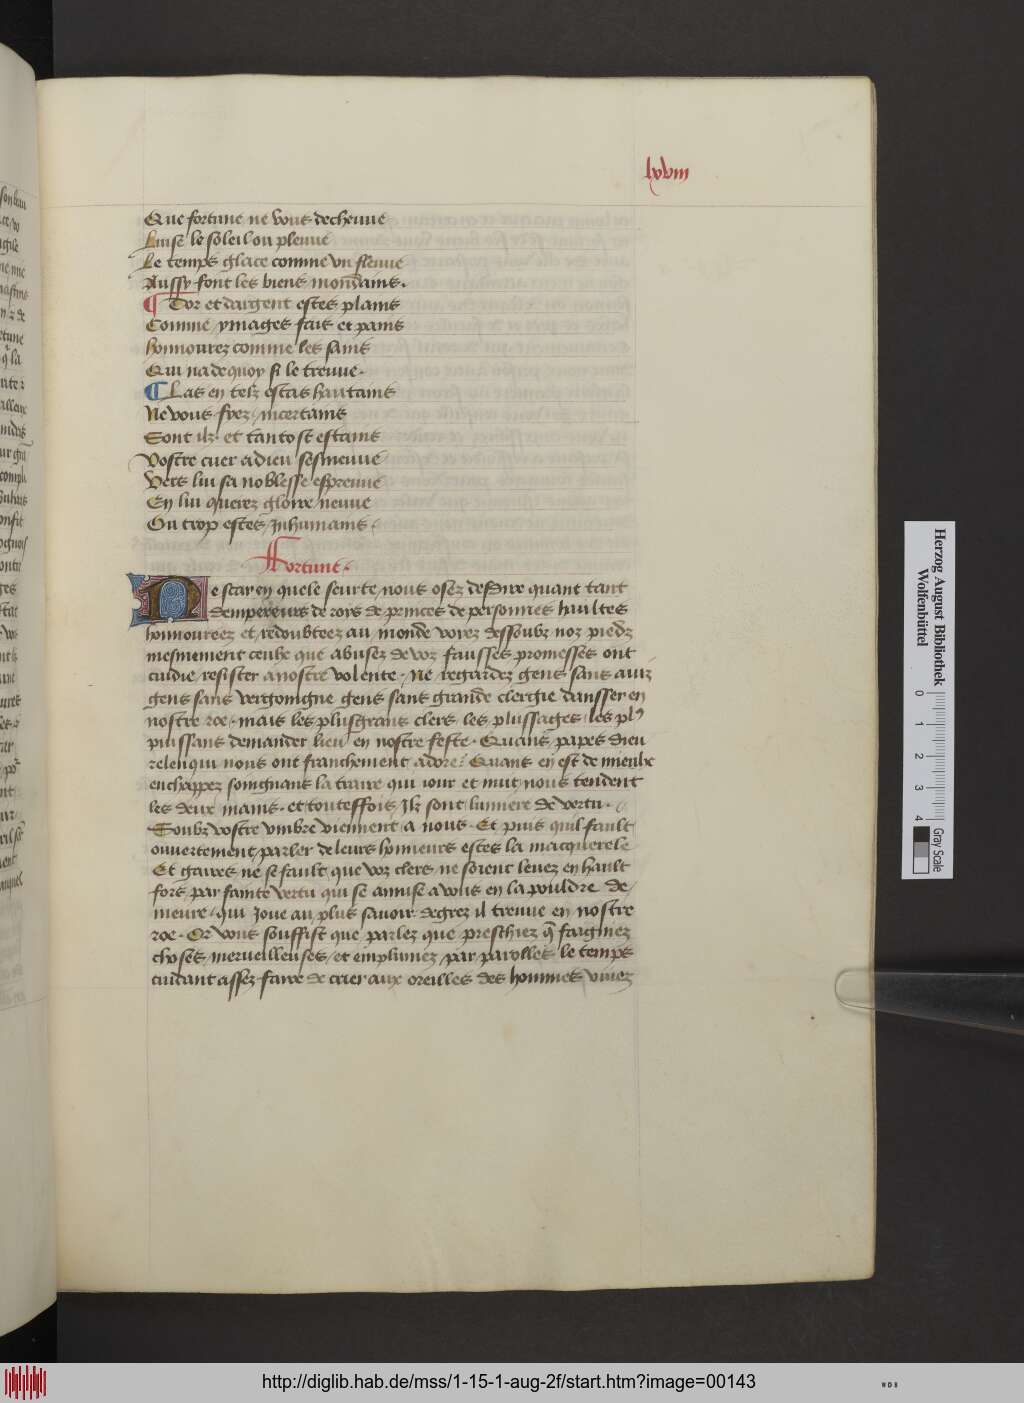 lxviii
Que fortune ne vous decheuue
Luise le soleil ou pleuue
Le temps glace comme vn fleuue
Aussy font les biens mondains.
¶ Dor et dargent estes plains
Comme ymages fais et pains
honnourez comme les sains
Qui na de quoy si le treuue.
¶ Las en telz estas haultains
Ne vous fyez / incertains
Sont ilz et tantost estains
Vostre cuer a dieu sesmeuue
Vers lui sa noblesse espreuue
En lui querez gloire neuue
Ou trop estes Inhumains /
Fortune.
Ne scay en quele seurte nous osez desdire quant tant
dempereurs de roys de princes de personnes haultes
honnoureez et redoubteez au monde voyez dessoubz noz piedz
mesmement ceulx que abusez de voz fausses promesses ont
cuidie resister a nostre volente. Ne regardez gens sans auis
gens sans vergoingne gens sans grande clergie dansser en
nostre roe. mais les plusgrans clers les plussages les pl9
puissans demander lieu en nostre feste. Quans papes dieu
relenqui nous ont franchement adore. Quans en est de mieulx
enchappez soingnans la traire qui iour et nuit nous tendent
les deux mains. et touteffois Ilz sont lumiere de vertu.
Soubz vostre vmbre viennent a nous. Et puis quil fault
ouuertement parler de leurs honneurs estes la macquerele
Et gaires ne se fault que voz clers ne soient leuez en hault
fors par sainte vertu qui se amuse a vous en la pouldre de/
meure / qui Joue au plus sauoir degrez il treuue en nostre
roe. Or vous souffist que parlez que preschiez q̃ fraigniez
choses merueilleuses / et emplumez par parolles le temps
cuidant assez faire de crier aux oreilles des hommes viuez
Herzog August Bibliothek
Wolfenbüttel
0 1 2 3 4
Gray Scale
http://diglib.hab.de/mss/1-15-1-aug-2f/start.htm?image=00143
WDB